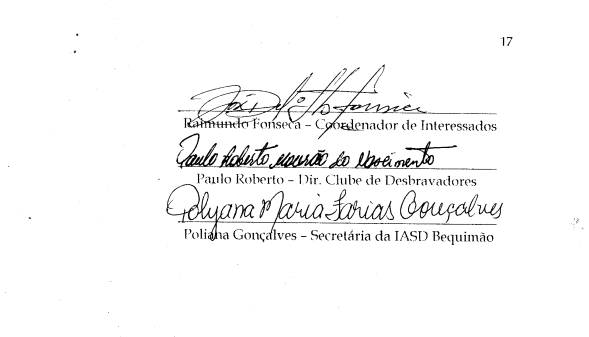 17
Raimundo Fonseca – Coordenador de Interessados
Paulo Roberto Mourão do Nascimento
Paulo Roberto – Dir. Clube de Desbravadores
Polyana Maria Farias Gonçalves
Poliana Gonçalves – Secretária da IASD Bequimão